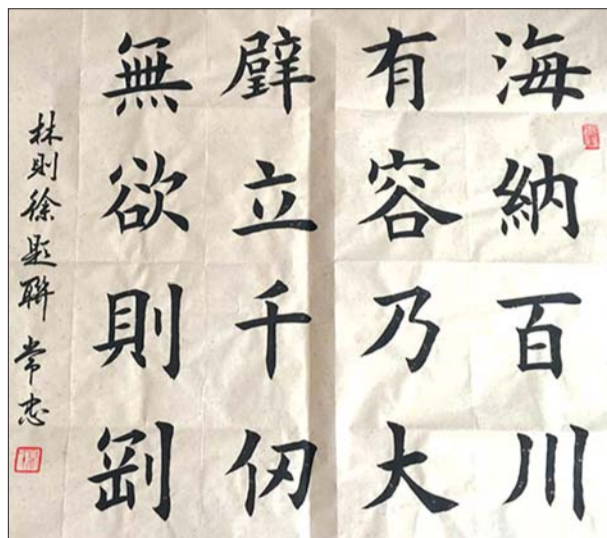 海納百川
有容乃大
壁立千仞
無欲則剛
林則徐題聯 常忠